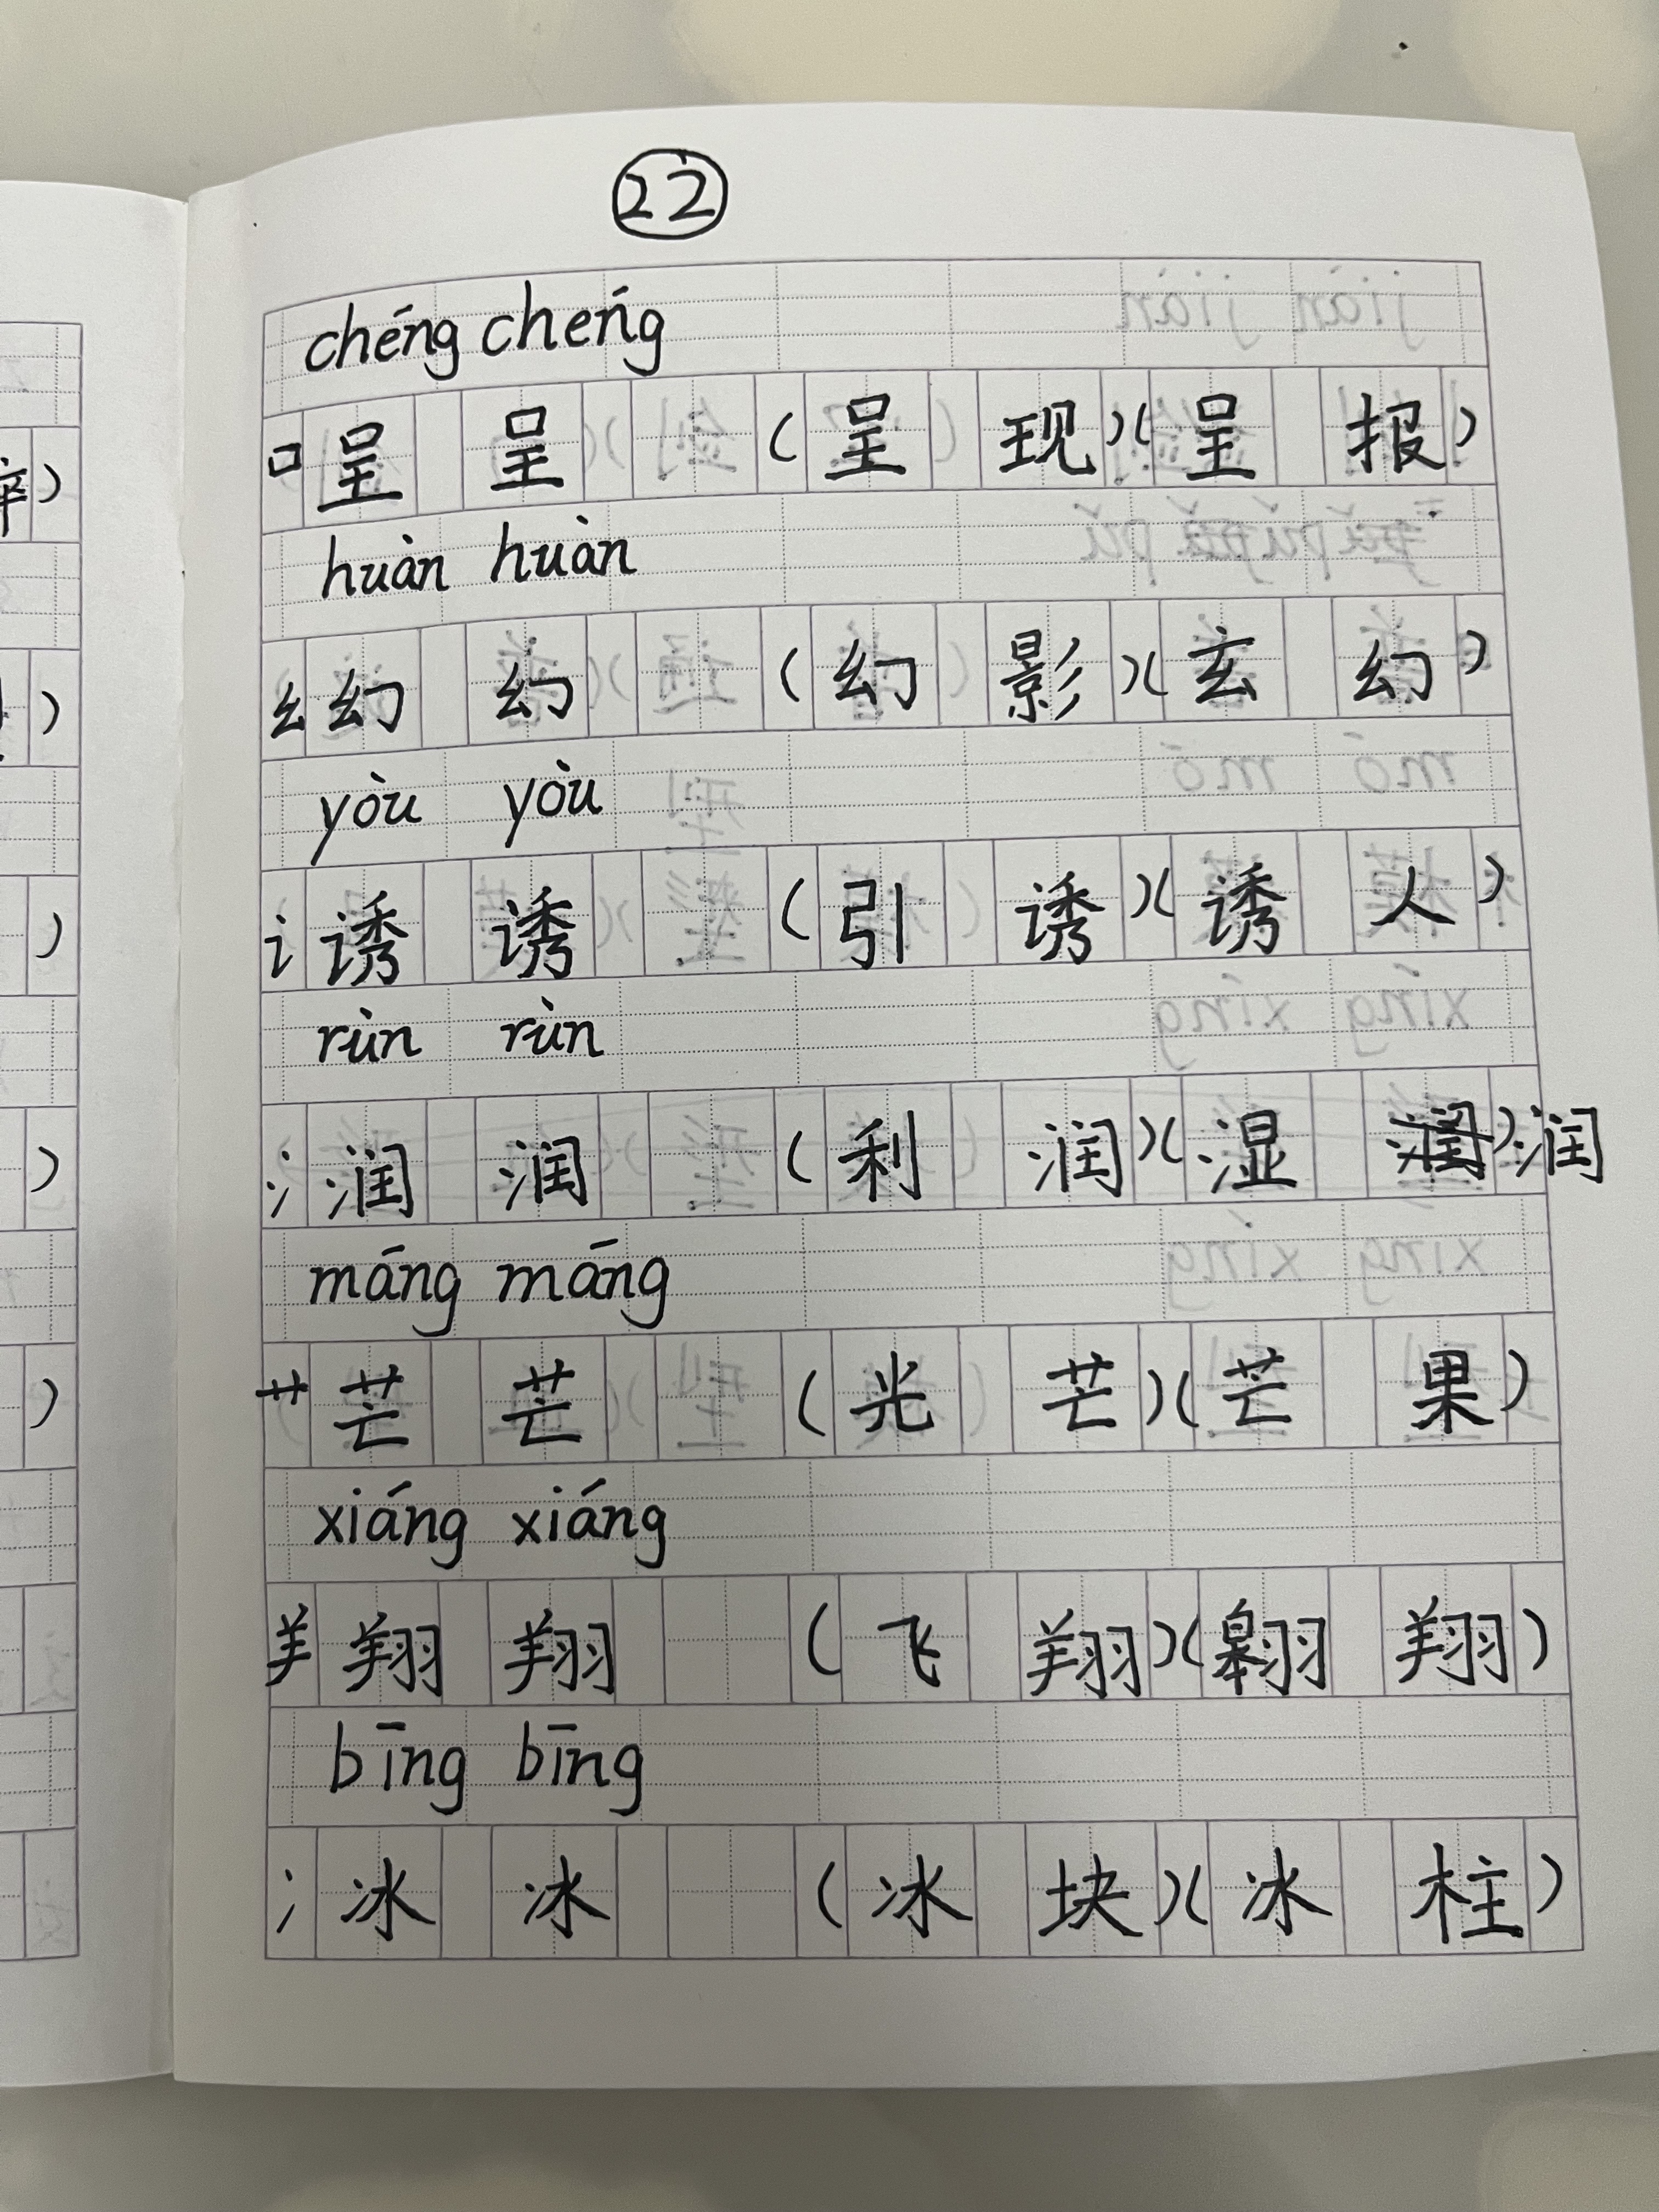 22
chéng chéng
口呈 呈 (呈现)(呈报)
huàn huàn
幺幻 幻 (幻影)(玄幻)
yòu yòu
讠诱 诱 (引诱)(诱人)
rùn rùn
氵润 润 (利润)(湿润)润
māng māng
艹芒 芒 (光芒)(芒果)
xiáng xiáng
羊翔 翔 (飞翔)(翱翔)
bīng bīng
冫冰 冰 (冰块)(冰柱)